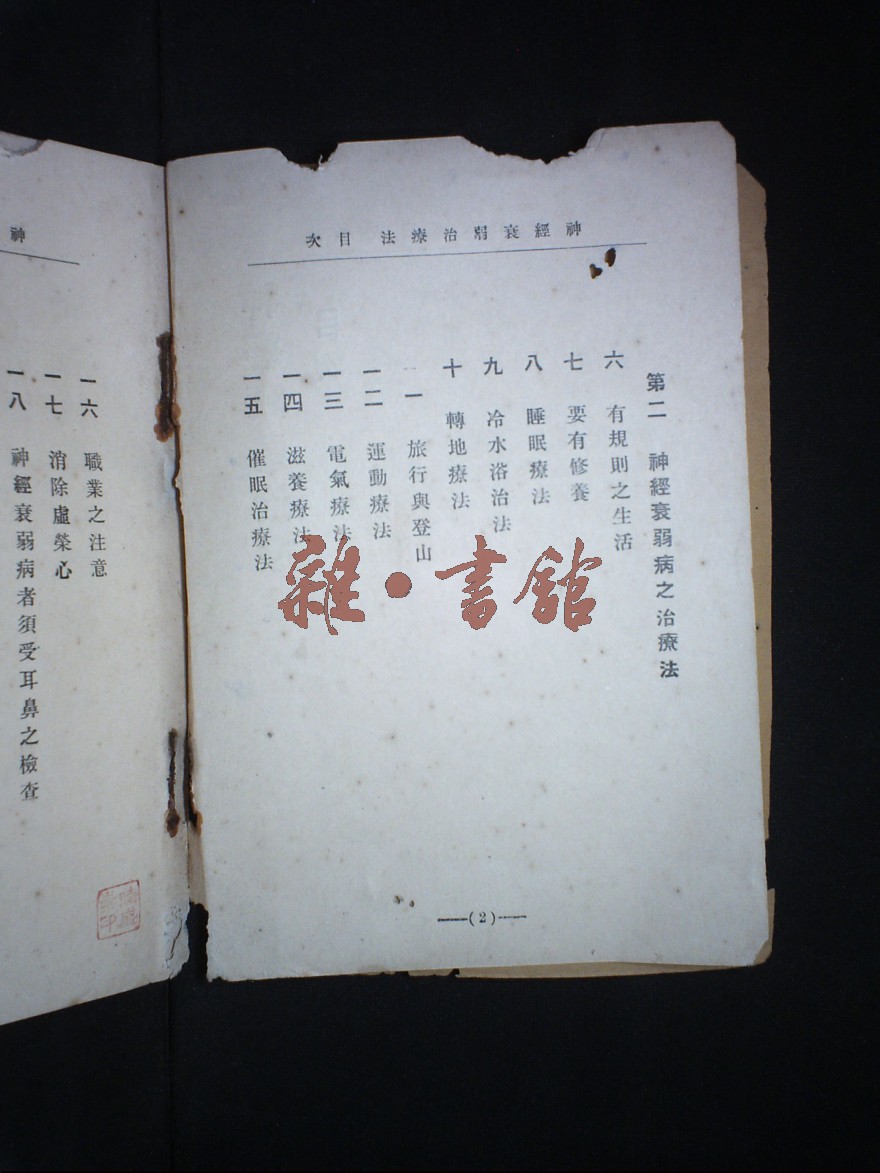 神經衰弱治療法 目次
第二 神經衰弱病之治療法
六 有規則之生活
七 要有修養
八 睡眠療法
九 冷水浴治法
十 轉地療法
一一 旅行與登山
一二 運動療法
一三 電氣療法
一四 滋養療法
一五 催眠治療法
(2)
雜·書館
神
一六 職業之注意
一七 消除虛榮心
一八 神經衰弱病者須受耳鼻之檢查